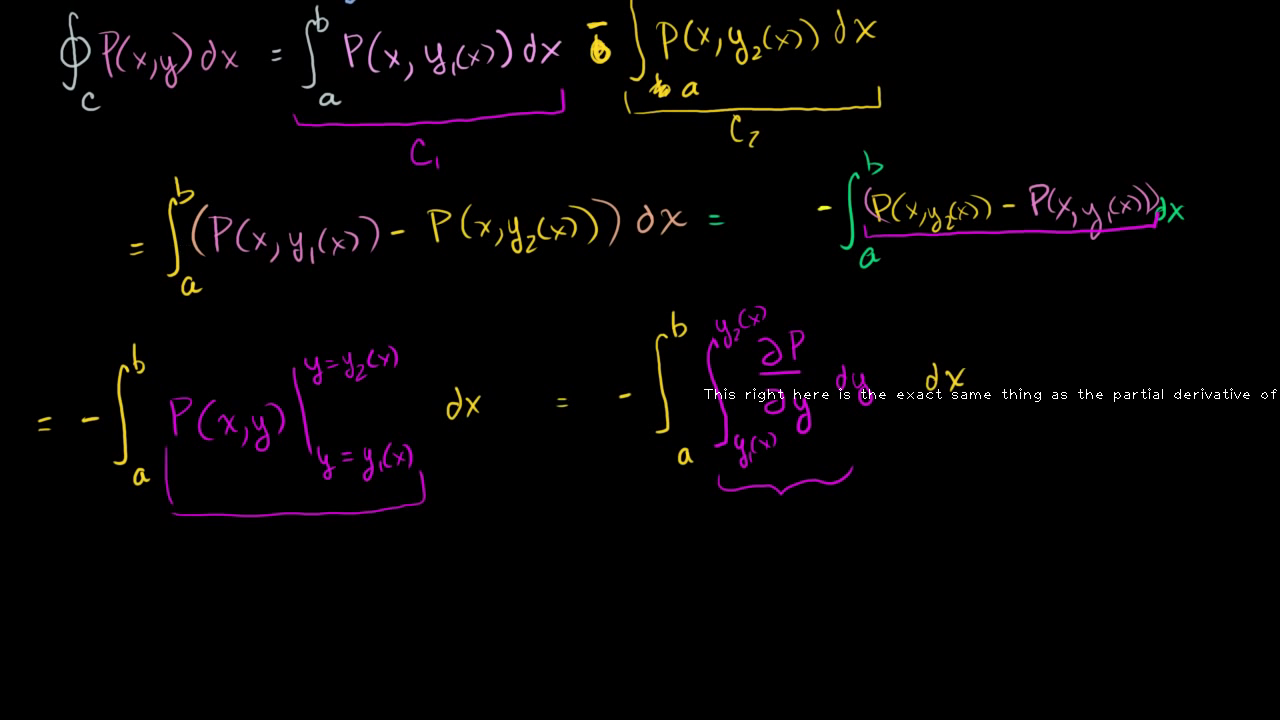 ∮_C P(x,y) dx = ∫_a^b P(x, y₁(x)) dx - ∫_a P(x, y₂(x)) dx
C₁ C₂
= ∫_a^b (P(x, y₁(x)) - P(x, y₂(x))) dx = - ∫_a^b (P(x, y₂(x)) - P(x, y₁(x))) dx
= - ∫_a^b P(x,y) |_{y = y₁(x)}^{y = y₂(x)} dx = - ∫_a^b ∫_{y₁(x)}^{y₂(x)} ∂P/∂y dy dx
This right here is the exact same thing as the partial derivative of